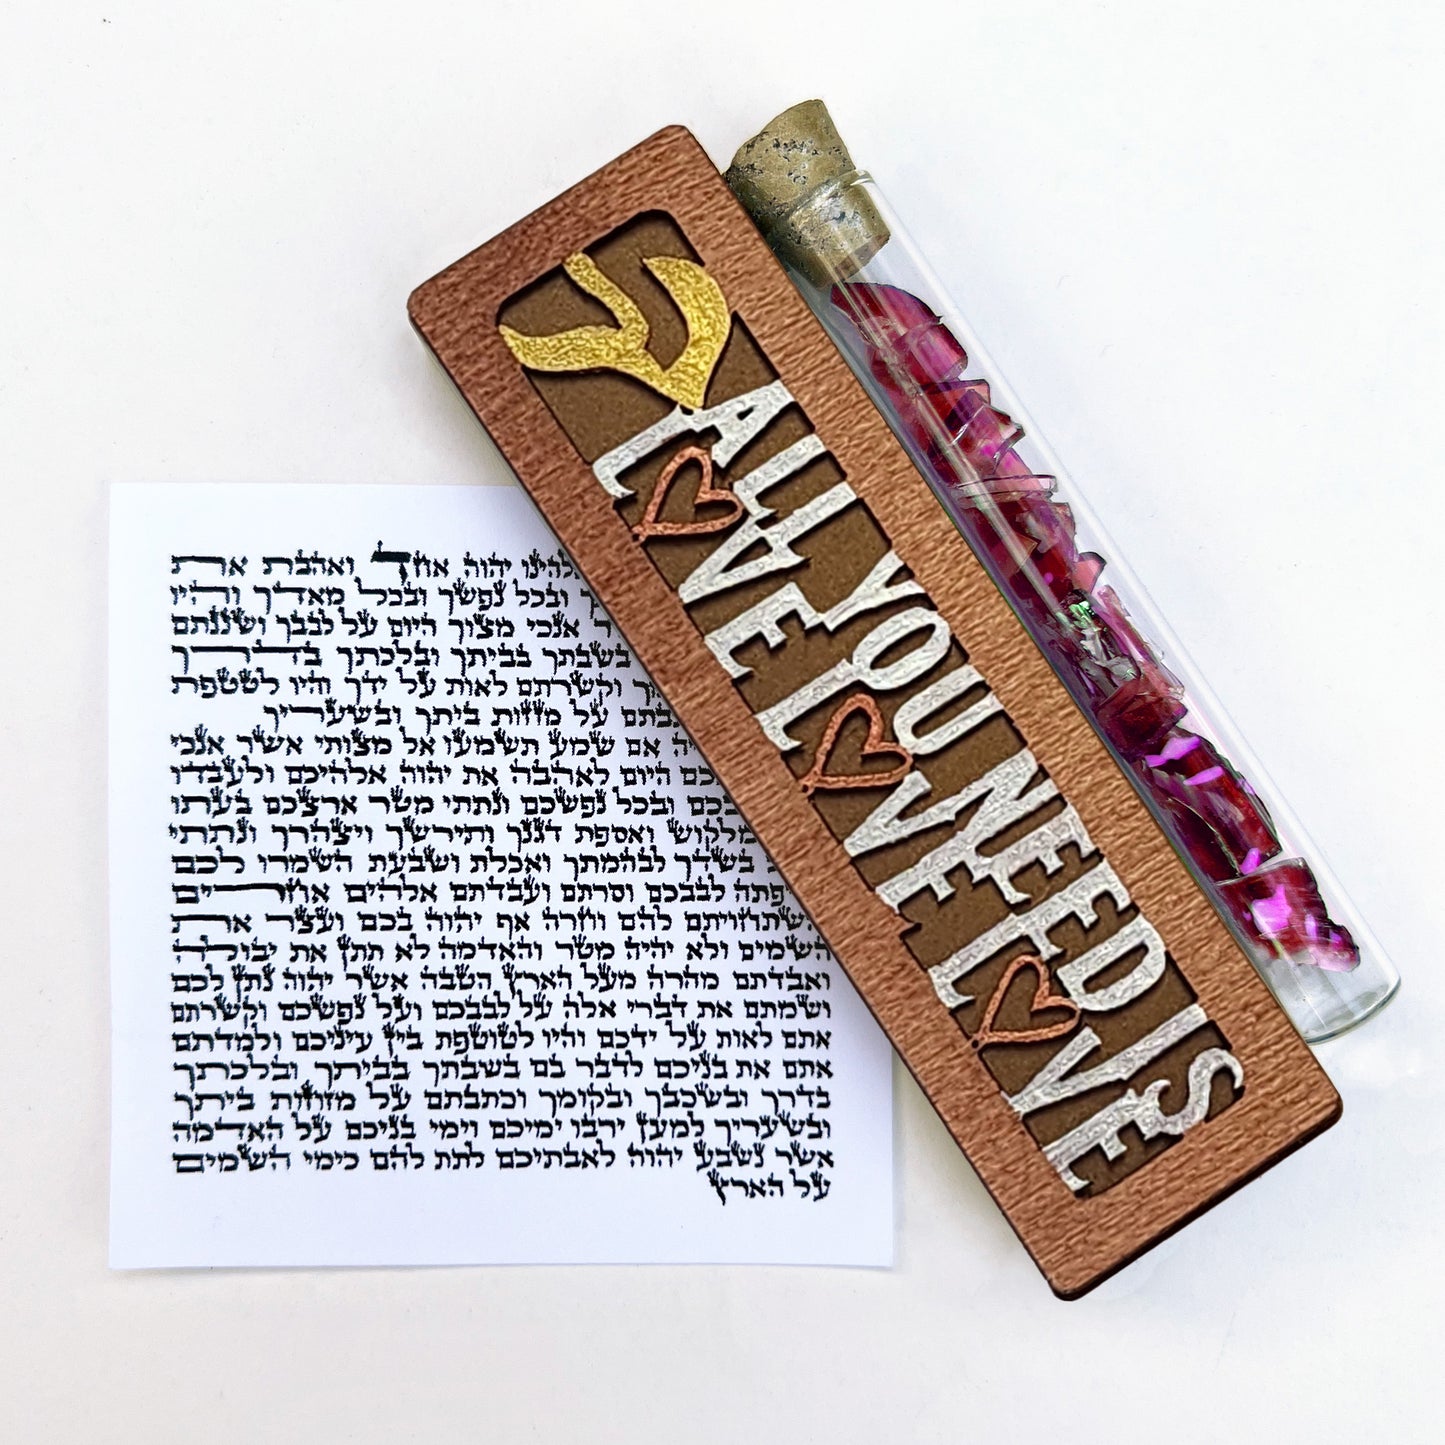 ש
ALL YOU NEED IS
LOVE LOVE LOVE
יהוה אחד ואהבת את
ובכל נפשך ובכל מאדך והיו
אנכי מצוך היום על לבבך ושננתם
בשבתך בביתך ובלכתך בדרך
וקשרתם לאות על ידך והיו לטטפת
על מזזות ביתך ובשעריך
אם שמע תשמעו אל מצותי אשר אנכי
היום לאהבה את יהוה אלהיכם ולעבדו
ובכל נפשכם ונתתי מטר ארצכם בעתו
מלקוש ואספת דגנך ותירשך ויצהרך ונתתי
בשדך לבהמתך ואכלת ושבעת השמרו לכם
יפתה לבבכם וסרתם ועבדתם אלהים אחרים
השתחויתם להם וחרה אף יהוה בכם ועצר את
השמים ולא יהיה מטר והאדמה לא תתן את יבולה
ואבדתם מהרה מעל הארץ הטבה אשר יהוה נתן לכם
ושמתם את דברי אלה על לבבכם ועל נפשכם וקשרתם
אתם לאות על ידכם והיו לטוטפת בין עיניכם ולמדתם
אתם את בניכם לדבר בם בשבתך בביתך ובלכתך
בדרך ובשכבך ובקומך וכתבתם על מזוזות ביתך
ובשעריך למען ירבו ימיכם וימי בניכם על האדמה
אשר נשבע יהוה לאבתיכם לתת להם כימי השמים
על הארץ